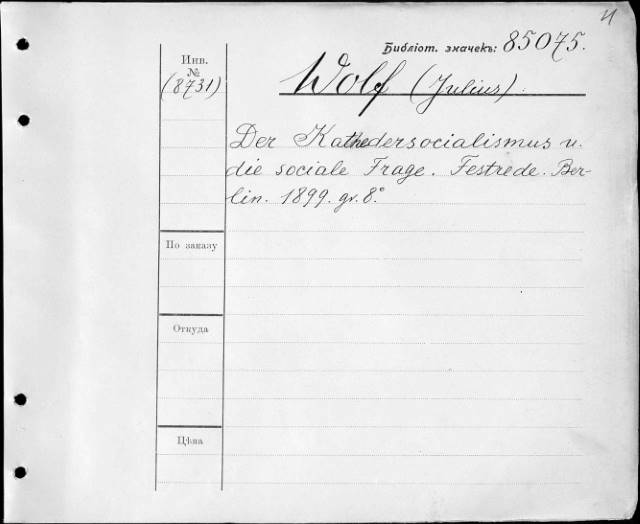 Библіот. значекъ: 85075.
Инв.
№
(8731)
Wolf (Julius).
Der Kathedersocialismus u.
die sociale Frage. Festrede. Ber-
lin. 1899. gr. 8°
По заказу
Откуда
Цѣна